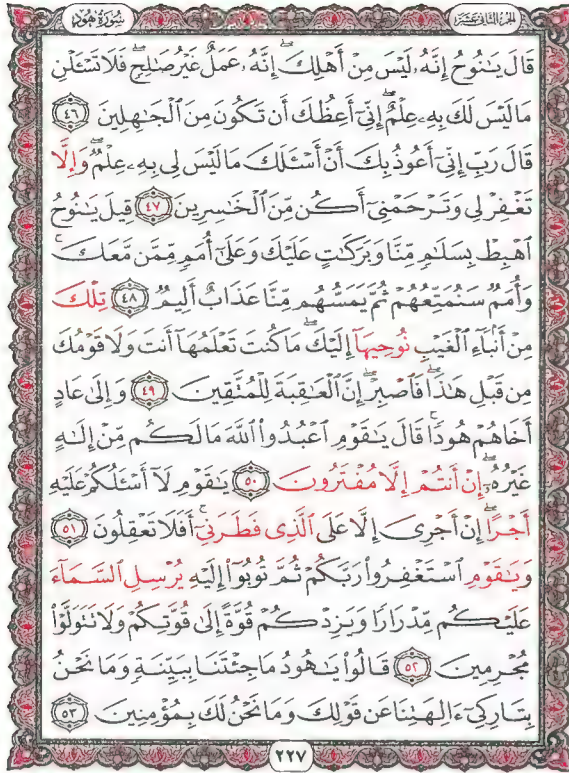 سُورَةُ هُودٍ
الجُزْءُ الثَّانِي عَشَرَ
قَالَ يَٰنُوحُ إِنَّهُۥ لَيْسَ مِنْ أَهْلِكَ ۖ إِنَّهُۥ عَمَلٌ غَيْرُ صَٰلِحٍ ۖ فَلَا تَسْـَٔلْنِ
مَا لَيْسَ لَكَ بِهِۦ عِلْمٌ ۖ إِنِّىٓ أَعِظُكَ أَن تَكُونَ مِنَ ٱلْجَٰهِلِينَ ٤٦
قَالَ رَبِّ إِنِّىٓ أَعُوذُ بِكَ أَنْ أَسْـَٔلَكَ مَا لَيْسَ لِى بِهِۦ عِلْمٌ ۖ وَإِلَّا
تَغْفِرْ لِى وَتَرْحَمْنِىٓ أَكُن مِّنَ ٱلْخَٰسِرِينَ ٤٧ قِيلَ يَٰنُوحُ
ٱهْبِطْ بِسَلَٰمٍ مِّنَّا وَبَرَكَٰتٍ عَلَيْكَ وَعَلَىٰٓ أُمَمٍ مِّمَّن مَّعَكَ ۚ
وَأُمَمٌ سَنُمَتِّعُهُمْ ثُمَّ يَمَسُّهُم مِّنَّا عَذَابٌ أَلِيمٌ ٤٨ تِلْكَ
مِنْ أَنۢبَآءِ ٱلْغَيْبِ نُوحِيهَآ إِلَيْكَ ۖ مَا كُنتَ تَعْلَمُهَآ أَنتَ وَلَا قَوْمُكَ
مِن قَبْلِ هَٰذَا ۖ فَٱصْبِرْ ۖ إِنَّ ٱلْعَٰقِبَةَ لِلْمُتَّقِينَ ٤٩ وَإِلَىٰ عَادٍ
أَخَاهُمْ هُودًا ۚ قَالَ يَٰقَوْمِ ٱعْبُدُوا۟ ٱللَّهَ مَا لَكُم مِّنْ إِلَٰهٍ
غَيْرُهُۥٓ ۖ إِنْ أَنتُمْ إِلَّا مُفْتَرُونَ ٥٠ يَٰقَوْمِ لَآ أَسْـَٔلُكُمْ عَلَيْهِ
أَجْرًا ۖ إِنْ أَجْرِىَ إِلَّا عَلَى ٱلَّذِى فَطَرَنِىٓ ۚ أَفَلَا تَعْقِلُونَ ٥١
وَيَٰقَوْمِ ٱسْتَغْفِرُوا۟ رَبَّكُمْ ثُمَّ تُوبُوٓا۟ إِلَيْهِ يُرْسِلِ ٱلسَّمَآءَ
عَلَيْكُم مِّدْرَارًا وَيَزِدْكُمْ قُوَّةً إِلَىٰ قُوَّتِكُمْ وَلَا تَتَوَلَّوْا۟
مُجْرِمِينَ ٥٢ قَالُوا۟ يَٰهُودُ مَا جِئْتَنَا بِبَيِّنَةٍ وَمَا نَحْنُ
بِتَارِكِىٓ ءَالِهَتِنَا عَن قَوْلِكَ وَمَا نَحْنُ لَكَ بِمُؤْمِنِينَ ٥٣
٢٢٧